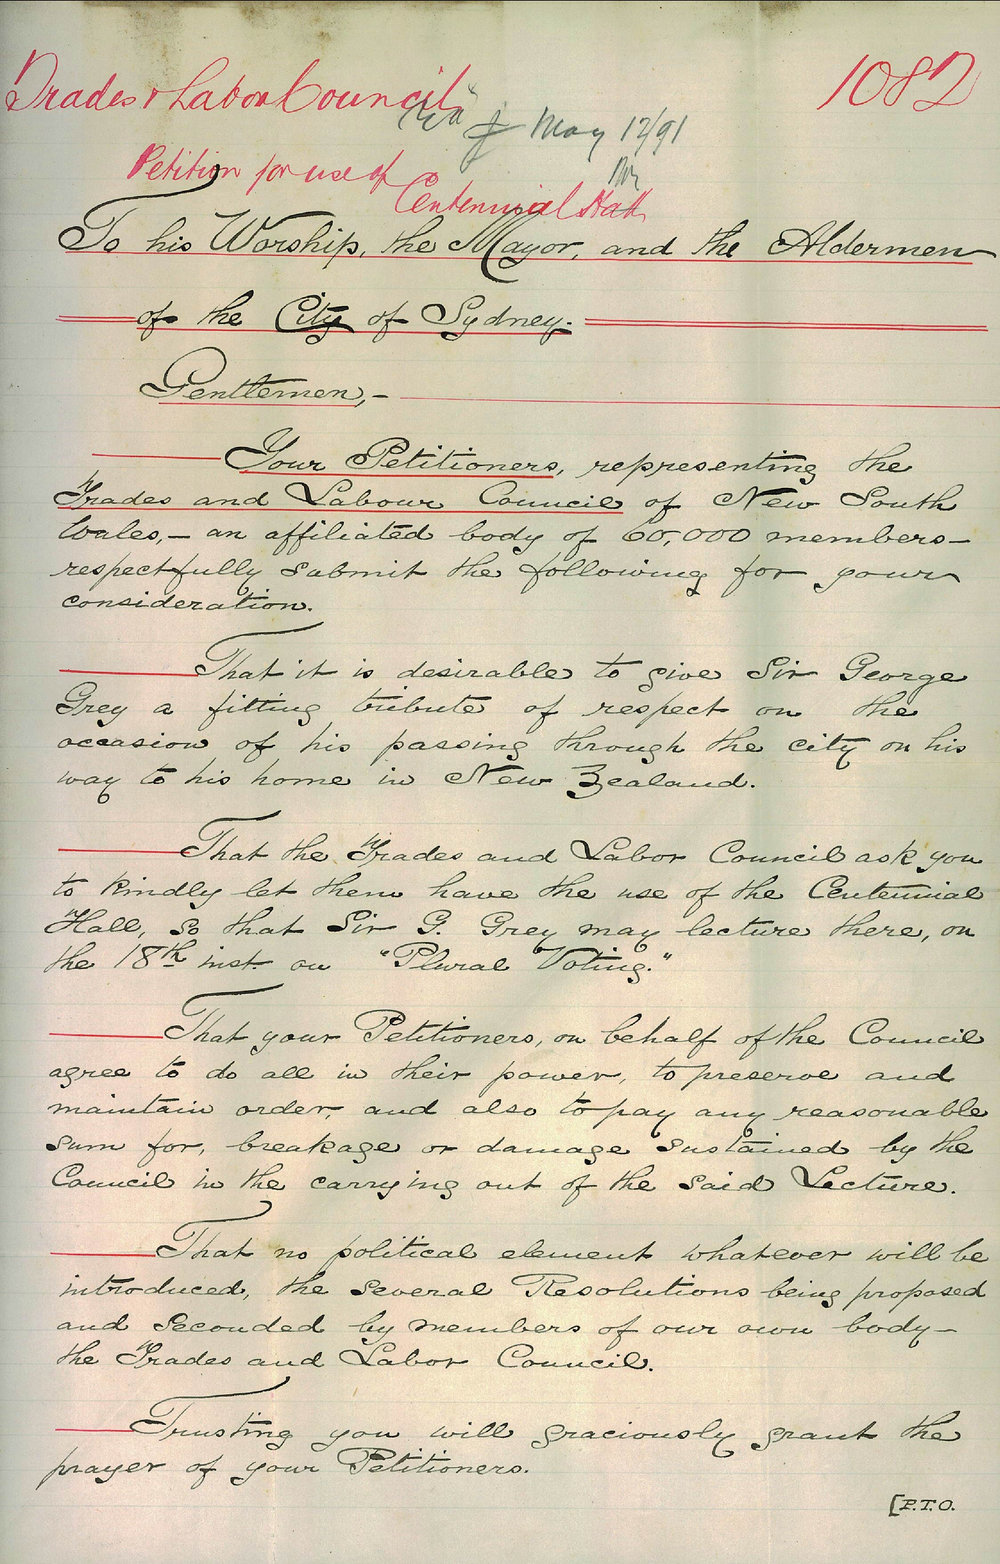 Trades & Labor Council
1082
May 12/91
Petition for use of
Centennial Hall
To his Worship, the Mayor, and the Aldermen
of the City of Sydney.
Gentlemen,-
Your Petitioners, representing the
Trades and Labour Council of New South
Wales,- an affiliated body of 60,000 members-
respectfully submit the following for your
consideration.
That it is desirable to give Sir George
Grey a fitting tribute of respect on the
occasion of his passing through the city on his
way to his home in New Zealand.
That the Trades and Labor Council ask you
to kindly let them have the use of the Centennial
Hall, so that Sir G. Grey may lecture there, on
the 18th inst. on "Plural Voting."
That your Petitioners, on behalf of the Council
agree to do all in their power, to preserve and
maintain order, and also to pay any reasonable
sum for, breakage or damage sustained by the
Council in the carrying out of the said Lecture.
That no political element whatever will be
introduced, the several Resolutions being proposed
and seconded by members of our own body-
the Trades and Labor Council.
Trusting you will graciously grant the
prayer of your Petitioners.
[P.T.O.